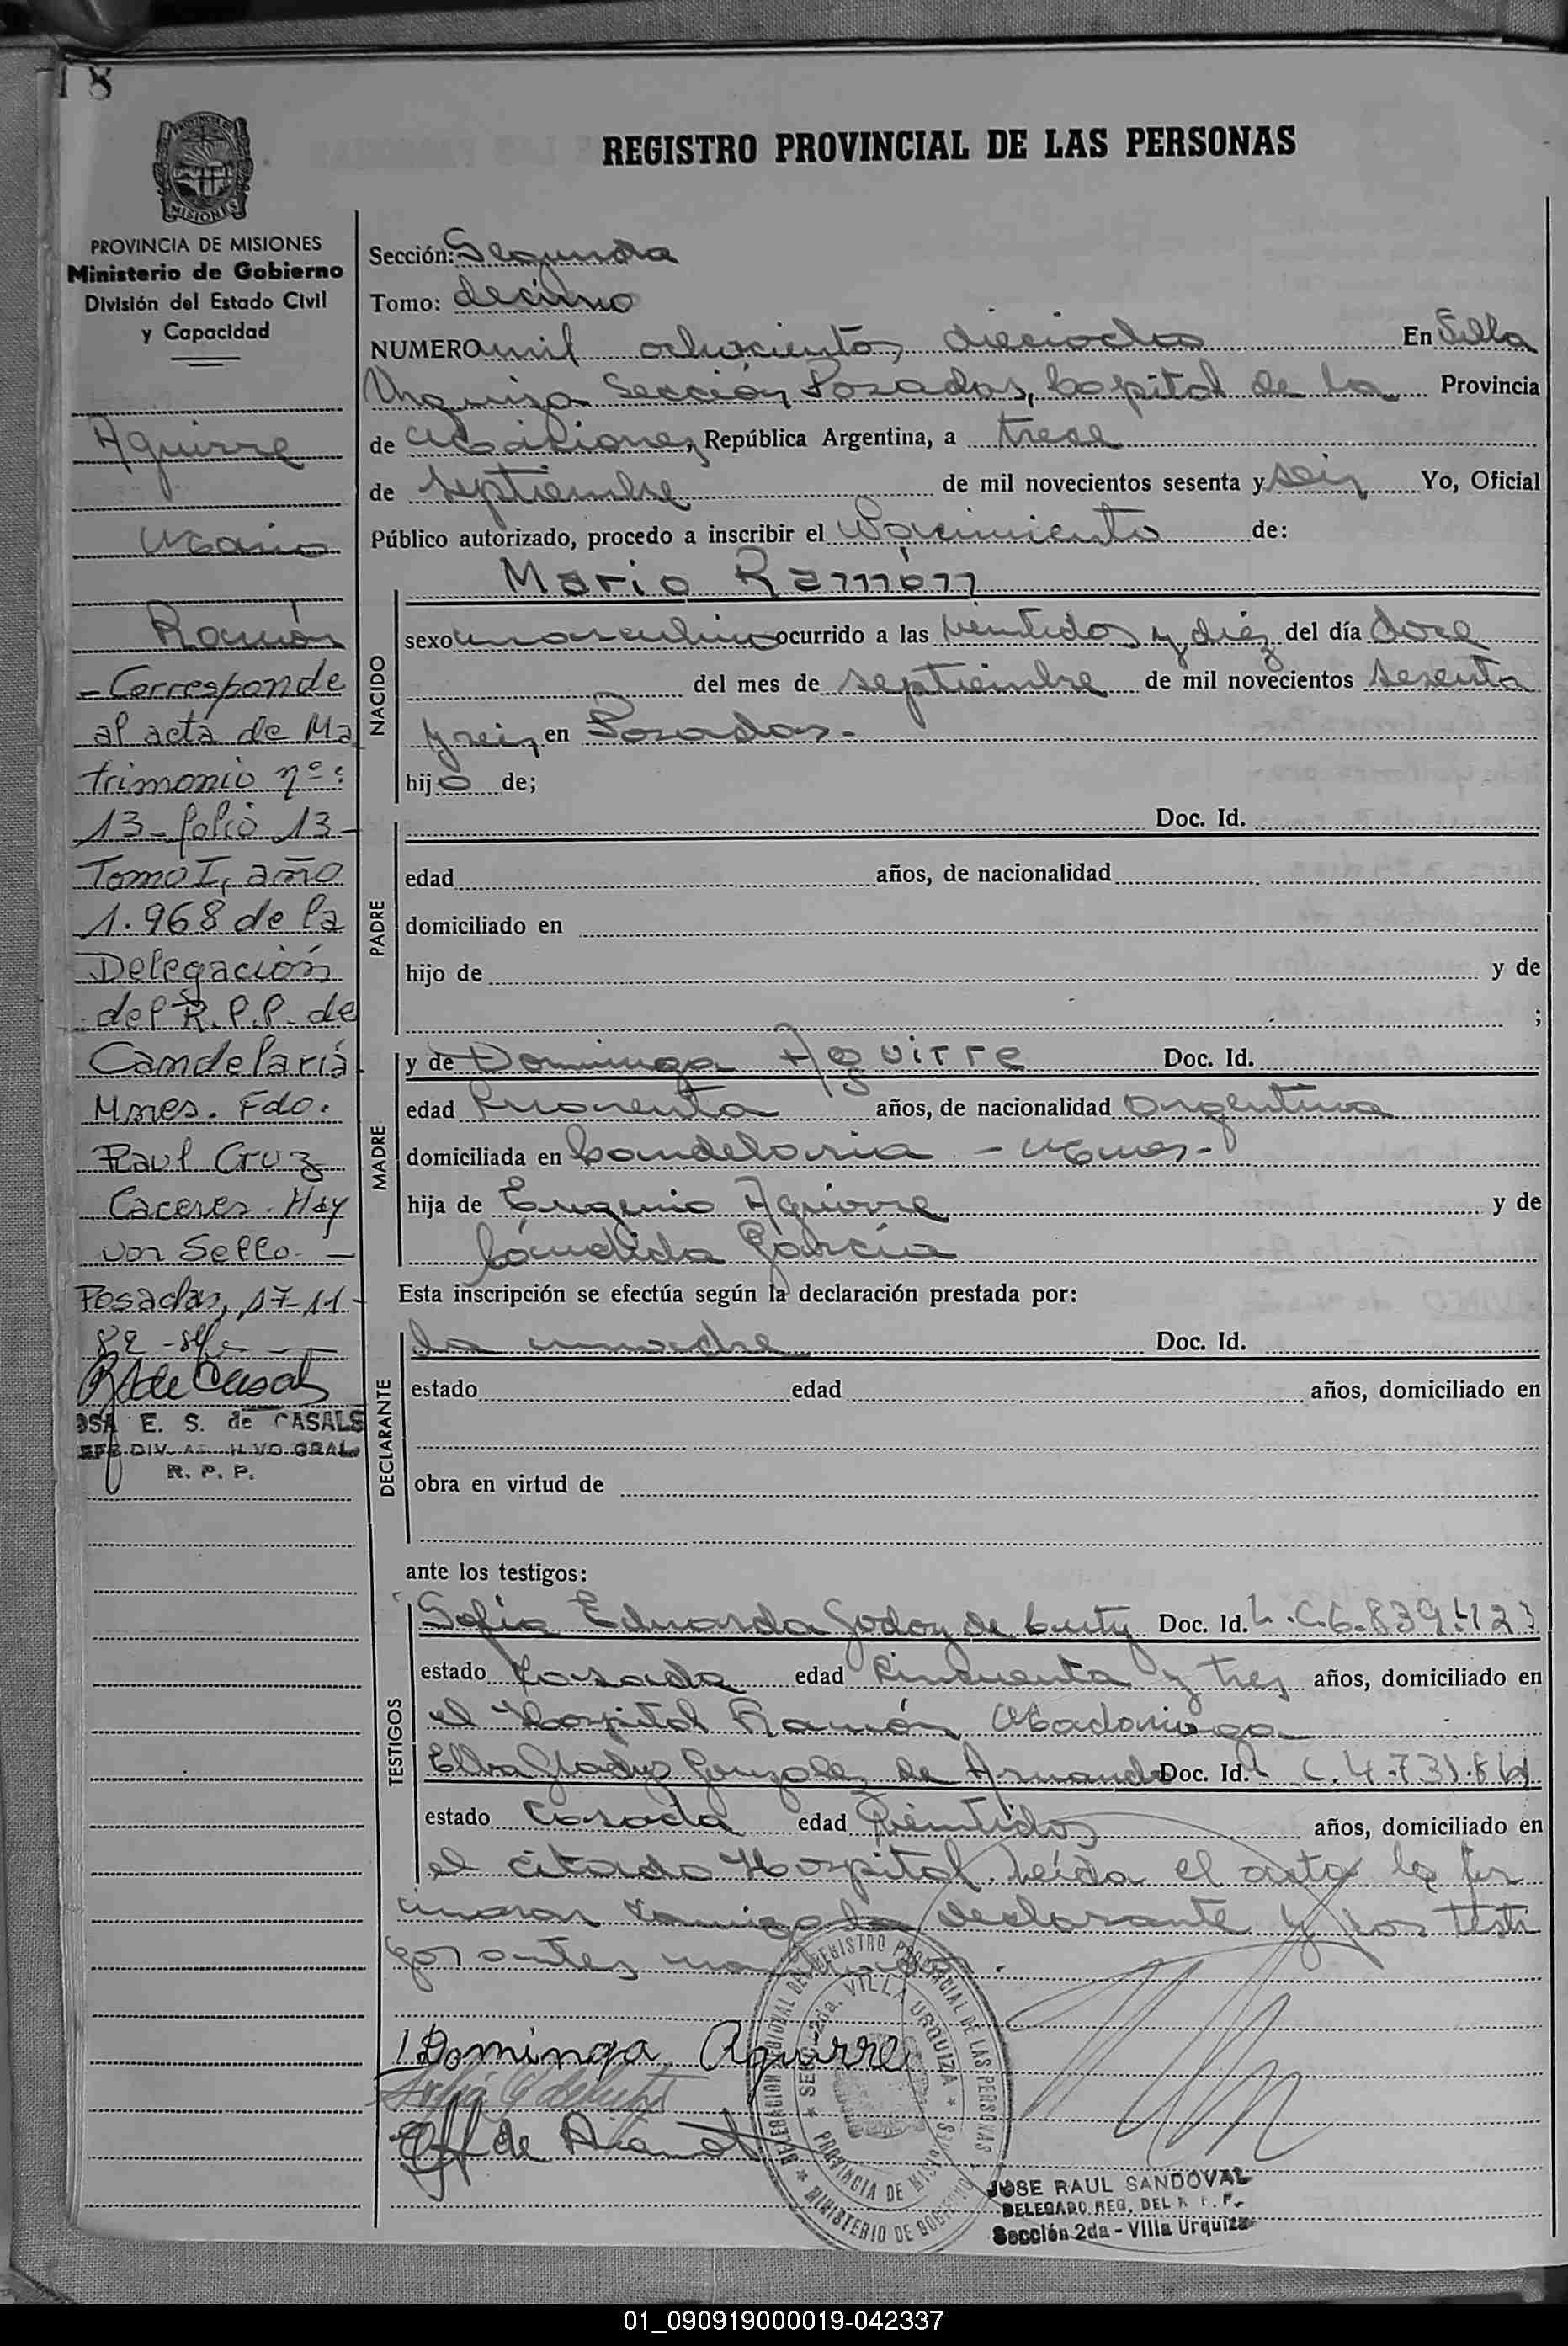 18
PROVINCIA DE
MISIONES
REGISTRO PROVINCIAL DE LAS PERSONAS
PROVINCIA DE MISIONES
Ministerio de Gobierno
División del Estado Civil
y Capacidad
Aguirre
Mario
Ramón
- Corresponde
al acta de Ma
trimonio nº:
13 - folio 13 -
Tomo I, año
1.968 de la
Delegación
del R.P.P. de
Candelaria
Mnes. Fdo.
Raul Cruz
Caceres. Hay
un Sello. -
Posadas, 17-11-
82
R de Casals
OSA E. S. de CASALS
EFE DIV. A H VO GRAL.
R. P. P.
Sección: Segunda
Tomo: decimo
NUMERO mil ochocientos dieciocho En Villa
Urquiza Sección Posadas, Capital de la Provincia
de Misiones, República Argentina, a trece
de septiembre de mil novecientos sesenta y seis Yo, Oficial
Público autorizado, procedo a inscribir el Nacimiento de:
Mario Ramón
NACIDO
sexo masculino ocurrido a las veintidos y diez del día doce
del mes de septiembre de mil novecientos sesenta
y seis en Posadas.-
hijo de;
PADRE
Doc. Id.
edad años, de nacionalidad
domiciliado en
hijo de y de
;
MADRE
y de Dominga Aguirre Doc. Id.
edad cuarenta años, de nacionalidad argentina
domiciliada en Candelaria - Mnes -
hija de Eugenio Aguirre y de
Cándida García
Esta inscripción se efectúa según la declaración prestada por:
DECLARANTE
la madre Doc. Id.
estado edad años, domiciliado en
obra en virtud de
ante los testigos:
TESTIGOS
Sofia Eduarda Godoy de Doc. Id. L.C 6.839.423
estado casada edad cincuenta y tres años, domiciliado en
el Hospital Ramón Madariaga
Elba Gladys Gonzalez de Doc. Id. L C. 4.731.
estado casada edad veintidos años, domiciliado en
el citado Hospital. Leída el acta la fir
maron conmigo la declarante y los testi
gos antes
Dominga Aguirre
DELEGACION REGIONAL DEL REGISTRO PROVINCIAL DE LAS PERSONAS
SECC. 2da. VILLA URQUIZA
PROVINCIA DE MISIONES
MINISTERIO DE GOBIERNO
JOSE RAUL SANDOVAL
DELEGADO REG. DEL R. P. P.
Sección 2da - Villa Urquiza
01_090919000019-042337